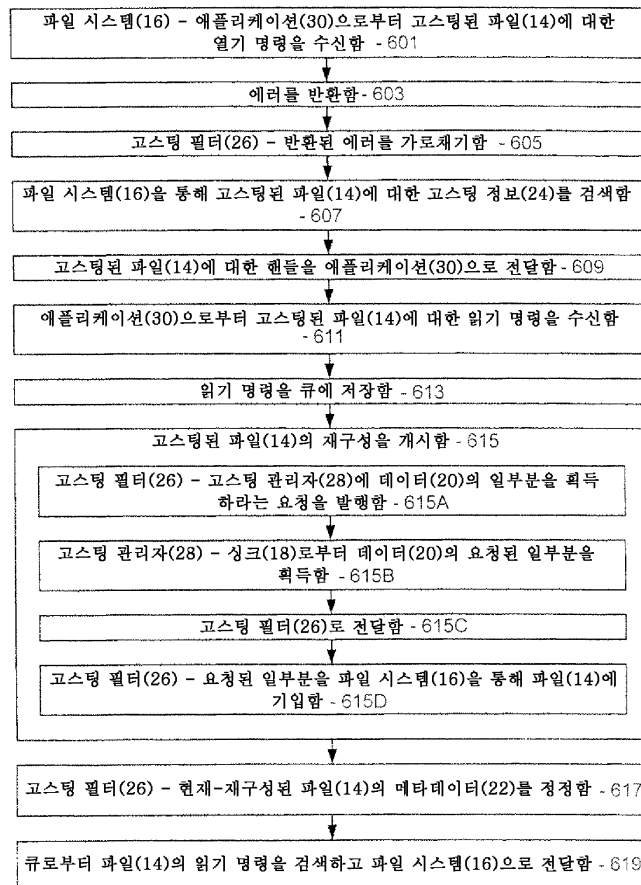 파일 시스템(16) - 애플리케이션(30)으로부터 고스팅된 파일(14)에 대한
열기 명령을 수신함 - 601
에러를 반환함 - 603
고스팅 필터(26) - 반환된 에러를 가로채기함 - 605
파일 시스템(16)을 통해 고스팅된 파일(14)에 대한 고스팅 정보(24)를 검색함
- 607
고스팅된 파일(14)에 대한 핸들을 애플리케이션(30)으로 전달함 - 609
애플리케이션(30)으로부터 고스팅된 파일(14)에 대한 읽기 명령을 수신함
- 611
읽기 명령을 큐에 저장함 - 613
고스팅된 파일(14)의 재구성을 개시함 - 615
고스팅 필터(26) - 고스팅 관리자(28)에 데이터(20)의 일부분을 획득
하라는 요청을 발행함 - 615A
고스팅 관리자(28) - 싱크(18)로부터 데이터(20)의 요청된 일부분을
획득함 - 615B
고스팅 필터(26)로 전달함 - 615C
고스팅 필터(26) - 요청된 일부분을 파일 시스템(16)을 통해 파일(14)에
기입함 - 615D
고스팅 필터(26) - 현재-재구성된 파일(14)의 메타데이터(22)를 정정함 - 617
큐로부터 파일(14)의 읽기 명령을 검색하고 파일 시스템(16)으로 전달함 - 619